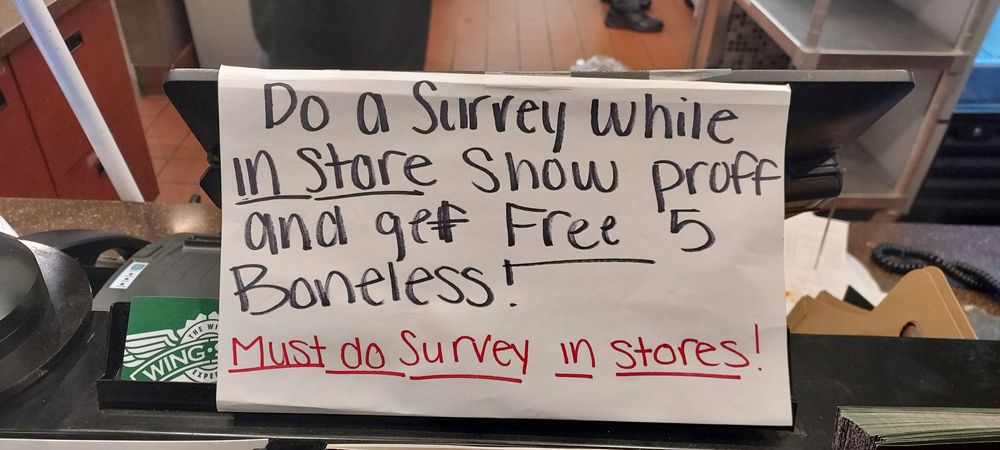 Do a Survey while
in store Show proff
and get Free 5
Boneless!
Must do Survey in stores!
THE WI
WING
EXPE